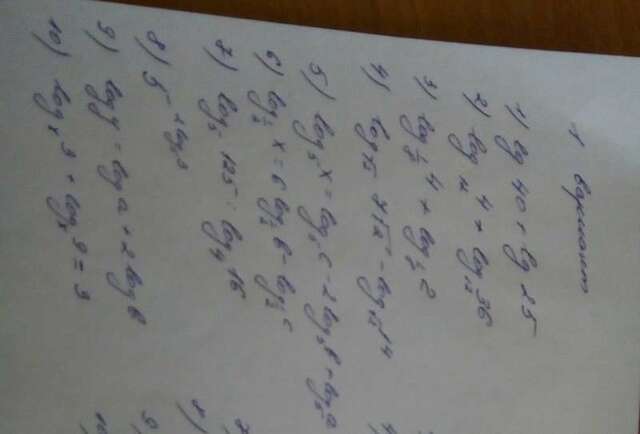 1 вариант
1) lg 40 + lg 25
2) log₁₂ 4 + log₁₂ 36
3) log_{1/2} 4 + log_{1/2} 2
4) log_{√2} 7√2 - log_{√2} 14
5) log₅ x = log₅ c - 2 log₅ b + log₅ a
6) log_{1/2} x = 6 log_{1/2} b - log_{1/2} c
7) log₅ 125 : log₄ 16
8) 5^{-2 log₅ 3}
9) log y = log a + 2 log b
10) logₓ 3 + logₓ 9 = 3